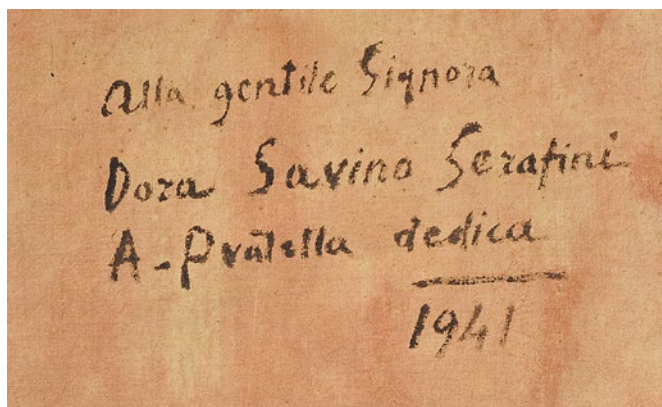 Alla gentile Signora
Dora Savino Serafini
A. Pratella dedica
1941